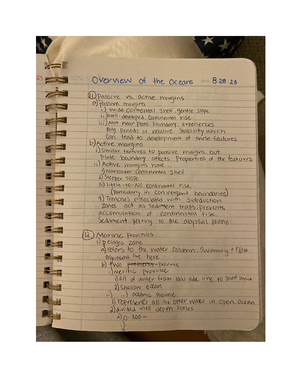 Overview of the Oceans 8 28 23
11) Passive vs. active margins
a) Passive margins
i) wide continental shelf, gentle slope
ii) well-developed continental rise
iii) Not near plate boundary, experiences
long periods of relative stability which
can lead to development of these features
b) Active margins
i) Similar features to passive margins but
Plate boundary affects Properties of the features
ii) Active margins have
1) Narrower continental shelf
2) Steeper slope
3) Little-to-NO continental rise
(particularly in convergent boundaries)
4) Trenches associated with subduction
zones act as sediment traps, prevents
accumulation of continental rise.
Sediment getting to the abyssal plains
12) Marine Provinces
1) pelagic zone
a) refers to the water column, swimming +
organisms live here
b) two province
i) neritic province
1) all of water from low tide line to shelf
2) shallow ocean
ii) oceanic province
1) represents all the other water in open ocean
2) divided into depth zones
a) 0-200-